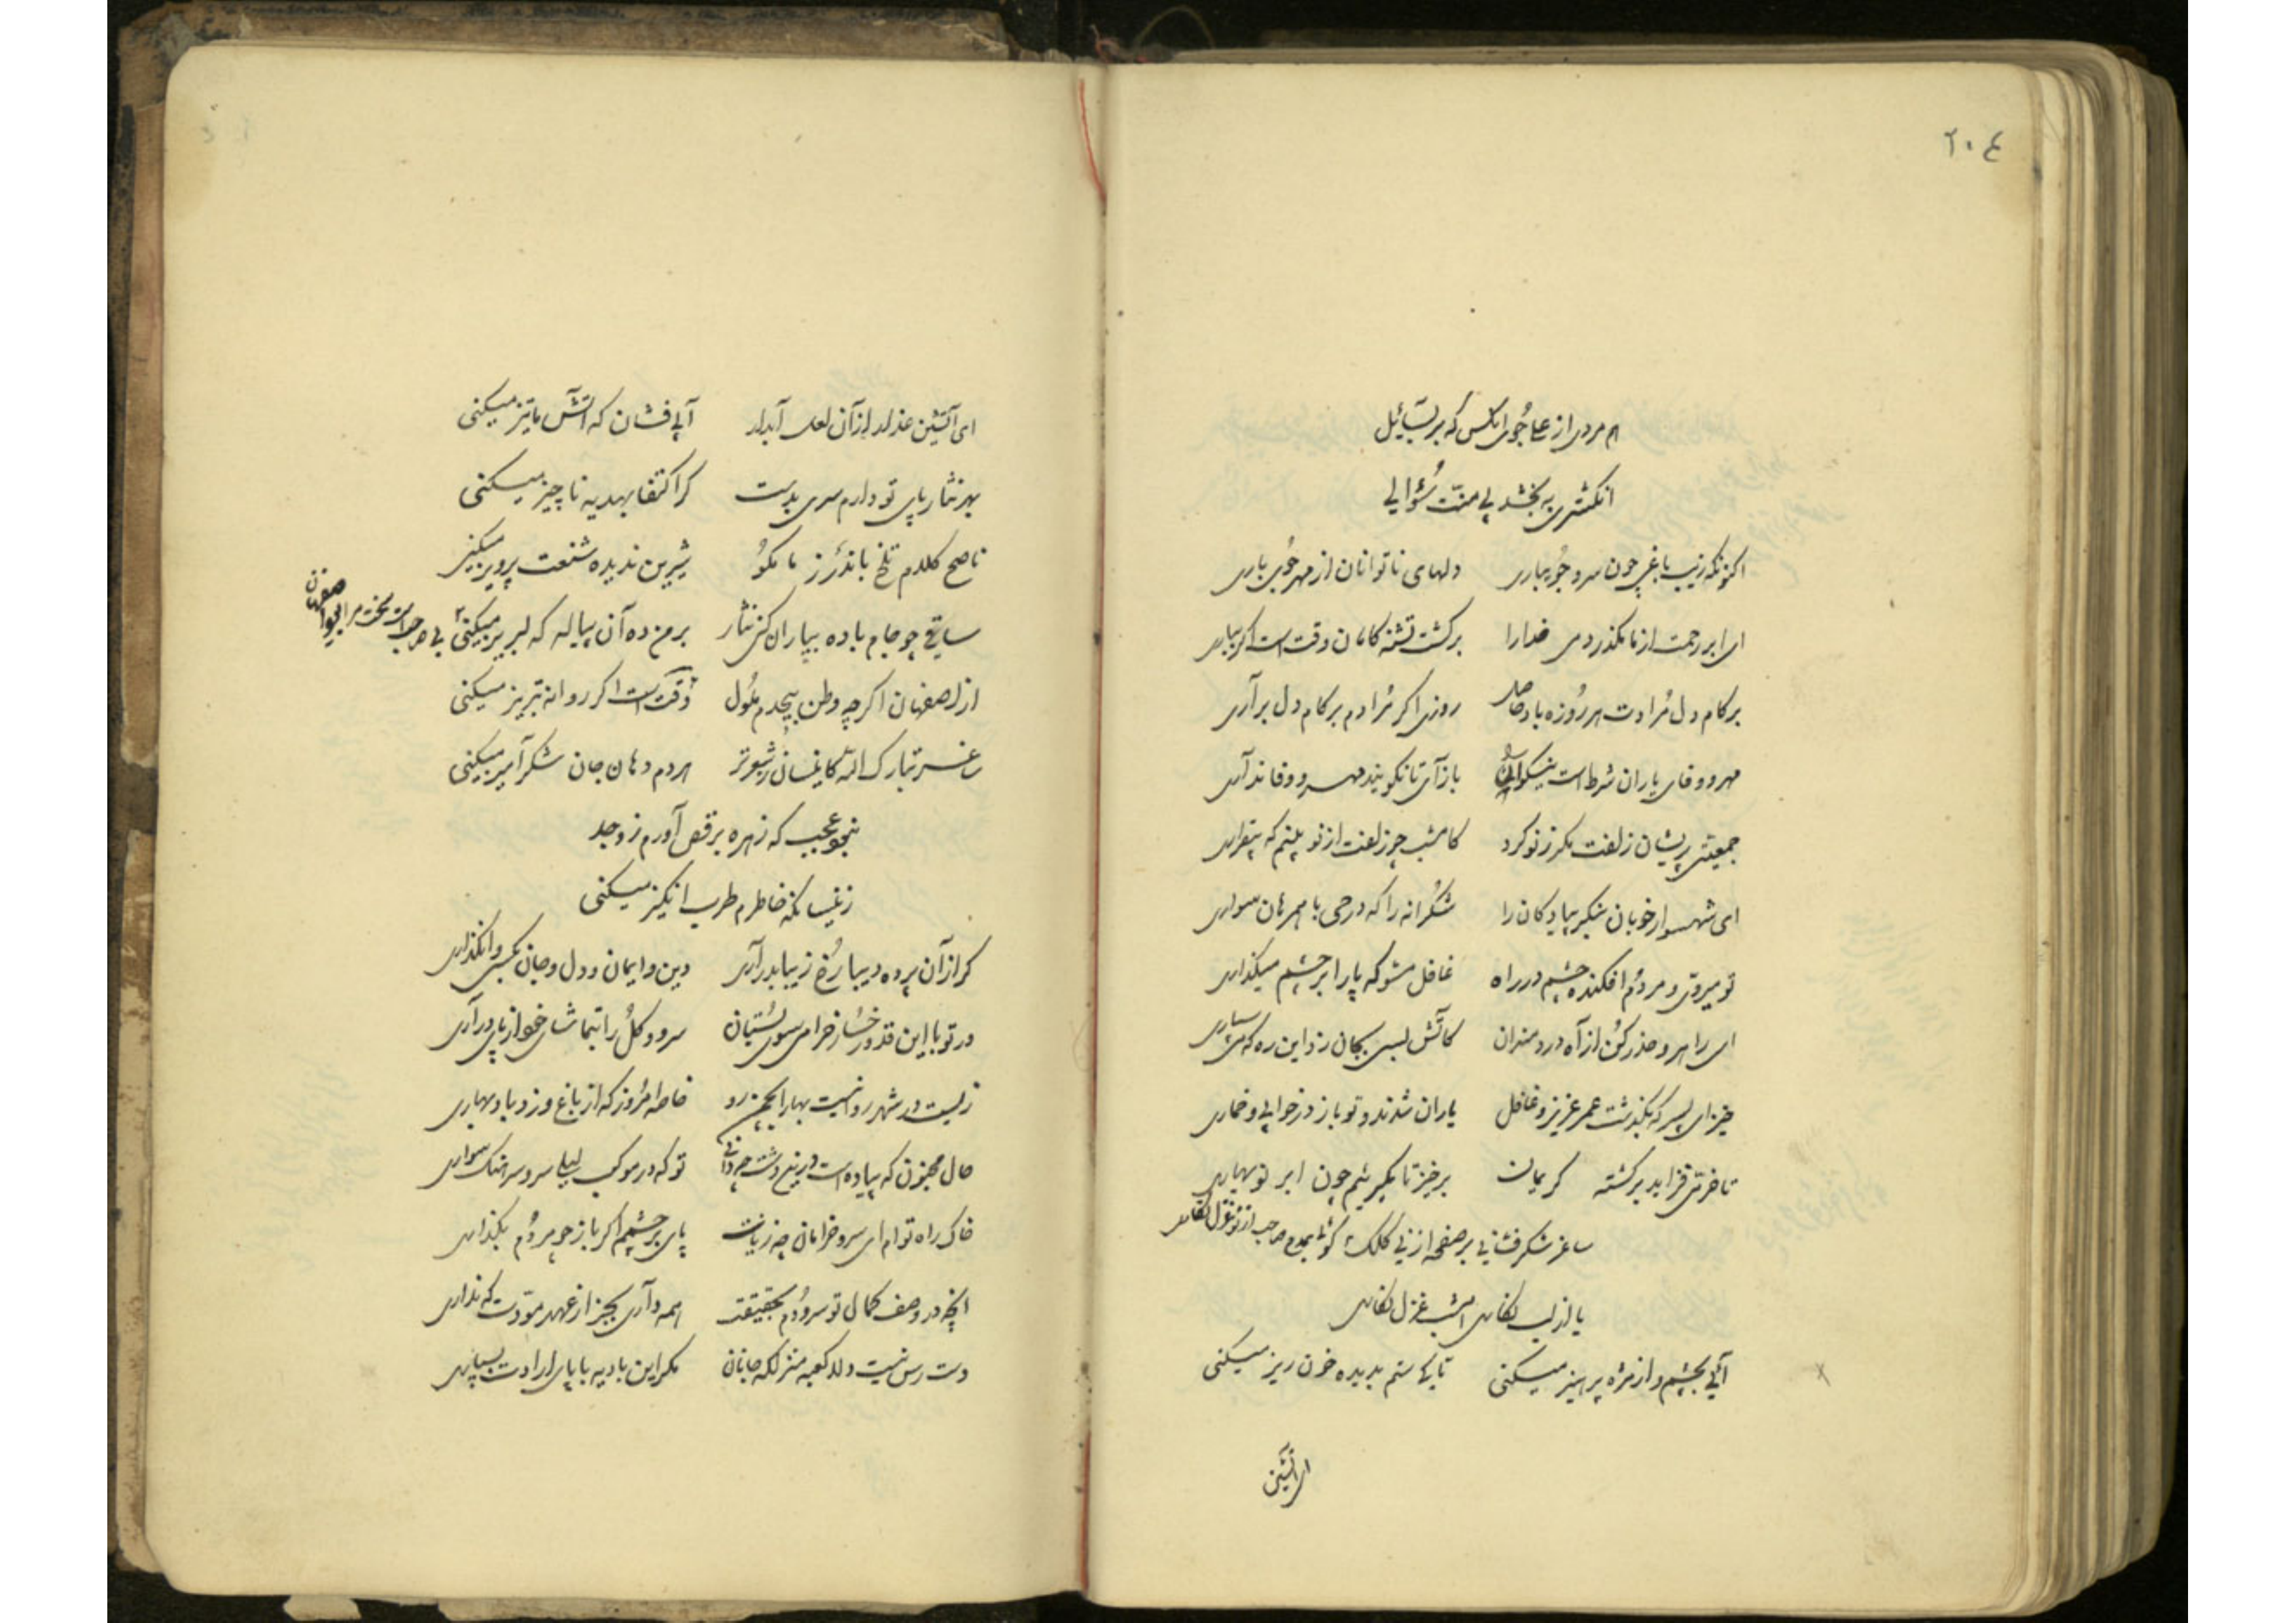 ۲۰٤
هم مردی از علی جوی انکس که بر بسائل
انکشتری به بخشد بی منت سُؤالی
اکنونکه زیب باغی چون سرو جُویباری دلهای ناتوانان از مهر جُوی باری
ای ابر رحمت از ما مکذر دمی خدارا بر کشت تشنه کامان وقت است اکر بباری
بر کام دل مُرادت هر رُوزه باد حاصل روزی اکر مُرادم بر کام دل برآری
مهر و وفای یاران شرط است باز آی تا نکویند مهر و وفا نداری
جمعیتی پریشان زلفت مکر ز نو کرد کامشب چو زلفت از نو بینم که بیقراری
ای شهسوار خوبان بنکر پیادکان را شکرانه را که درحی با همرهان سواری
تو میروی و مردُم افکنده چشم در راه غافل مشو که پا را بر چشم میکذاری
ای راهرو حذر کُن از آه دردمندان کآتش بسی بجان زد این ره که می سپاری
خیز ای پسر که بکذشت عمر عزیز و غافل یاران شدند و تو باز در خوابی و خماری
تا خرمی فزاید بر کشته کریمان برخیز تا بکیریم چون ابر نوبهاری
ساغر شکرفشانی بر صفحه از نی کلک کوئی بمدح صاحب از نو غزل نکاری
یا از لب نکاری امشب غزل نکاری
آئی بچشم و از مژه پرهیز میکنی تا کی ستم بدیده خون ریز میکنی
ای آتشین
ای آتشین عذار از آن لعل آبدار آبی فشان که آتش ما تیز میکنی
بهر نثار پای تو دارم سری بدست کر اکتفا بهدیه ناچیز میکنی
ناصح کلام تلخ باندرز ما مکوُ شیرین ندیده شنعت پرویز میکنی
ساقی چو جام باده بیاران کنی نثار بر من ده آن پیاله که لبریز میکنی
از اصفهان اکرچه وطن بیخودم ملُول وقت است اکر روانه تبریز میکنی
ساغر تبارک الله کاینسان ز شعر تر هر دم دهان جان شکرآمیز میکنی
نبود عجب که زهره برقص آورم ز وجد
زینسانکه خاطرم طرب انکیز میکنی
کر از آن پرده دیبا رُخ زیبا بدر آری دین و ایمان و دل و جان بکسی وانکذاری
ور تو با این قد و رخسار خرامی سوی بُستان سرو و کُل را بتماشای خود از پای درآری
زیست در شهر روا نیست بهار خاصه امرُوز که از باغ وزد باد بهاری
حال مجنون که پیاده است درین دشت چه دانی تو که در موکب لیلی سر و سرهنک سواری
خاک راه توام ای سرو خرامان چه زیانت پای بر چشمم اکر باز چو مردُم بکذاری
انچه در وصف کمال تو سرودم بحقیقت همه داری بجز از عهد مودت که نداری
دست رس نیست دلا کعبه منزلکه جانان مکر این بادیه با پای ارادت بسپاری